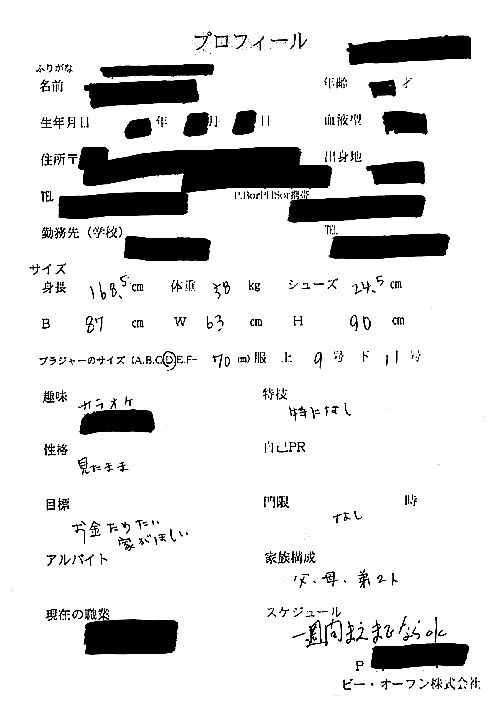 プロフィール
ふりがな
名前 年齢 才
生年月日 年 月 日 血液型
住所〒 出身地
TEL P.BorPHSor携帯
勤務先（学校） TEL
サイズ
身長 168.5 cm 体重 58 kg シューズ 24.5 cm
B 87 cm W 63 cm H 90 cm
ブラジャーのサイズ (A.B.C.D.E.F- 70 (m) 服 上 9 号 下 11 号
趣味 カラオケ 特技 特になし
性格 見たまま 自己PR
目標 お金ためたい 家がほしい 門限 なし 時
アルバイト 家族構成 父、母、弟2人
現在の職業 スケジュール 一週間まえまでならok
P
ビー・オーフン株式会社